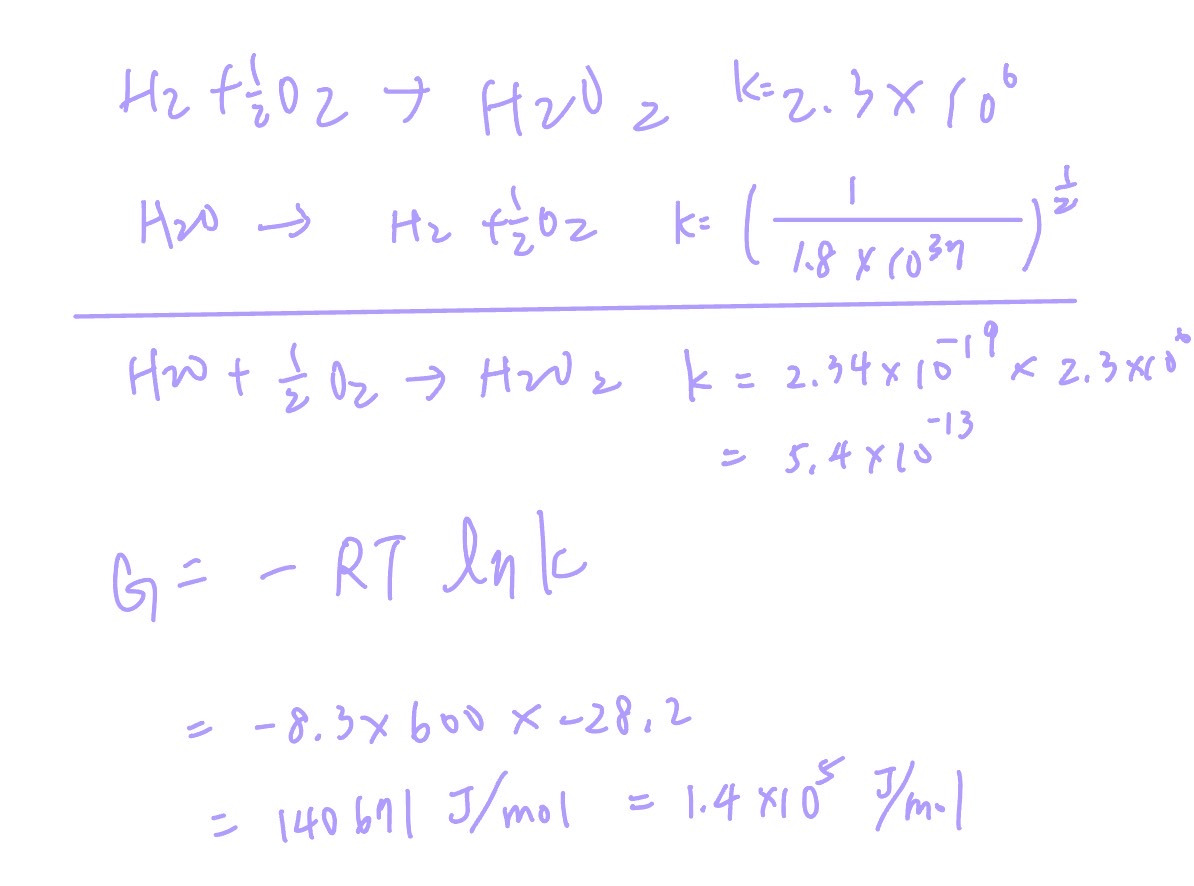 H2 + 1/2 O2 → H2O2 k= 2.3 × 10^6
H2O → H2 + 1/2 O2 k= (1 / 1.8 × 10^37)^1/2
H2O + 1/2 O2 → H2O2 k = 2.34 × 10^-19 × 2.3 × 10^6
= 5.4 × 10^-13
G = - RT ln k
= -8.3 × 600 × -28.2
= 140671 J/mol = 1.4 × 10^5 J/mol